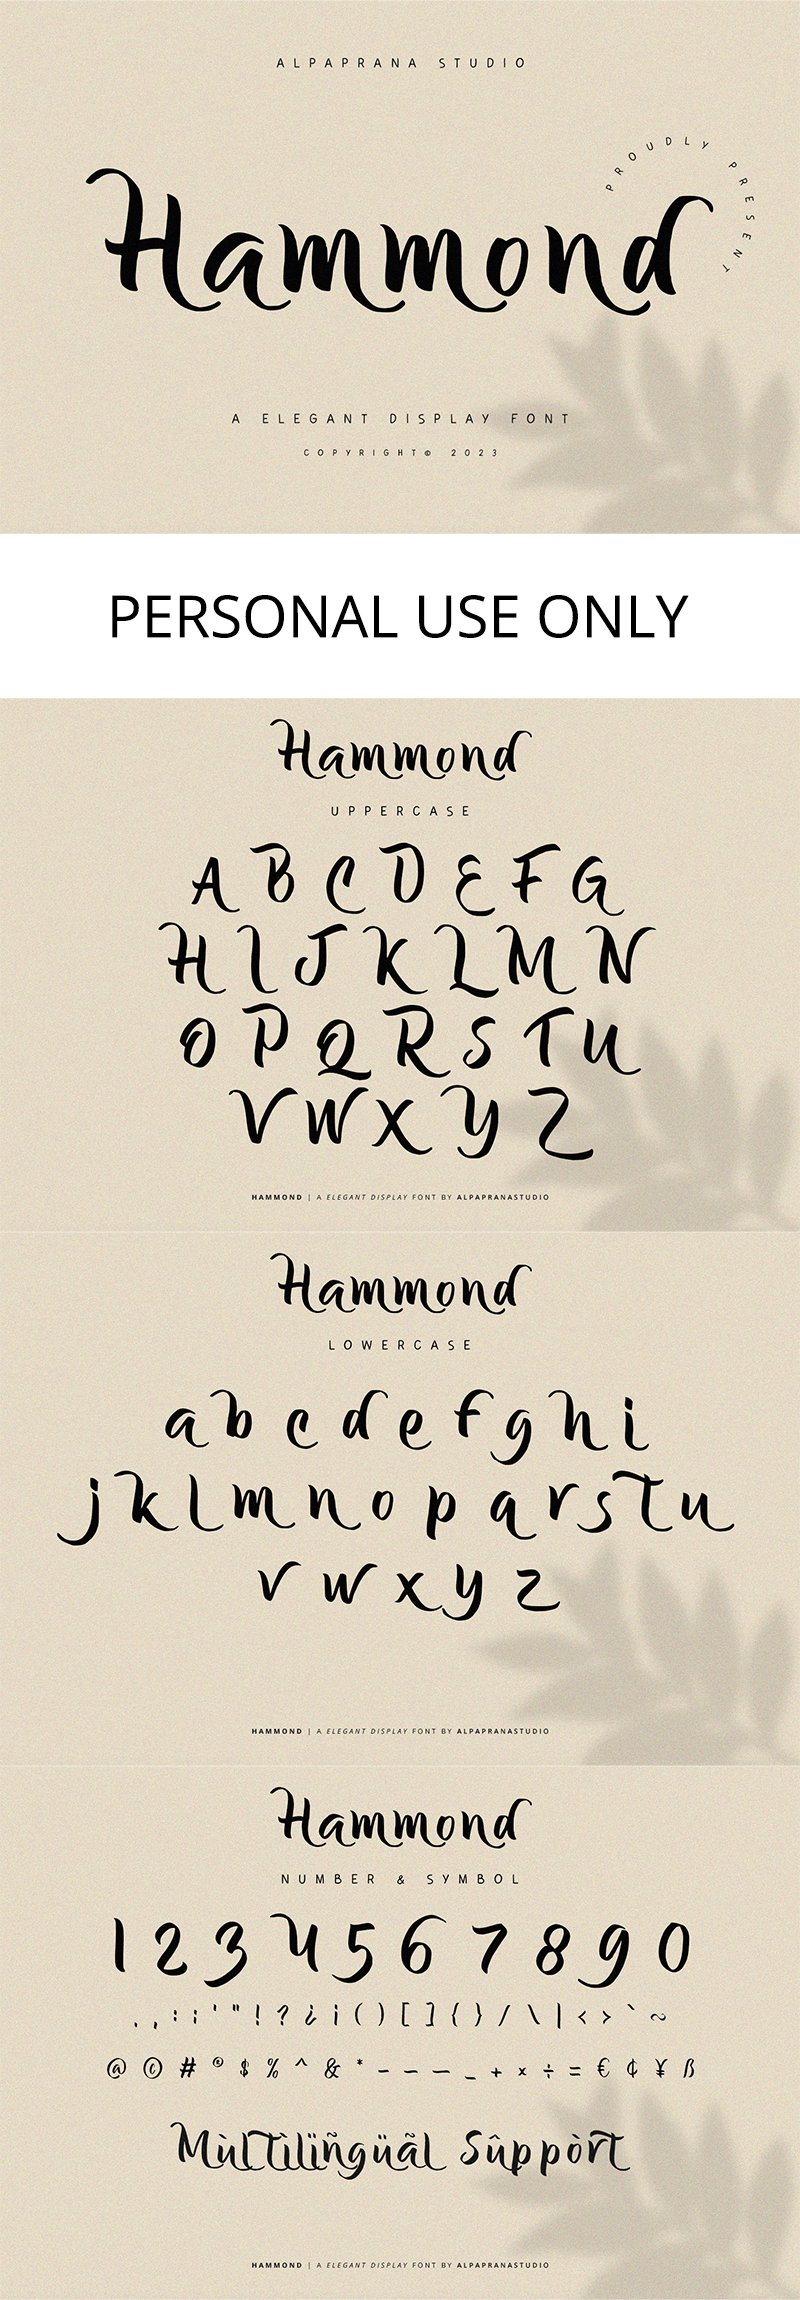 ALPAPRANA STUDIO
PROUDLY PRESENT
Hammond
A ELEGANT DISPLAY FONT
COPYRIGHT© 2023
PERSONAL USE ONLY
Hammond
UPPERCASE
A B C D E F G
H I J K L M N
O P Q R S T U
V W X Y Z
HAMMOND | A ELEGANT DISPLAY FONT BY ALPAPRANASTUDIO
Hammond
LOWERCASE
a b c d e f g h i
j k l m n o p q r s t u
v w x y z
HAMMOND | A ELEGANT DISPLAY FONT BY ALPAPRANASTUDIO
Hammond
NUMBER & SYMBOL
1 2 3 4 5 6 7 8 9 0
. , : ; ' " ! ? ¿ ¡ ( ) [ ] { } / \ | < > ` ~
@ © # ® $ % ^ & * - – — _ + × ÷ = € ¢ ¥ ß
Mùltìlïñgüãl Sûppòrt
HAMMOND | A ELEGANT DISPLAY FONT BY ALPAPRANASTUDIO